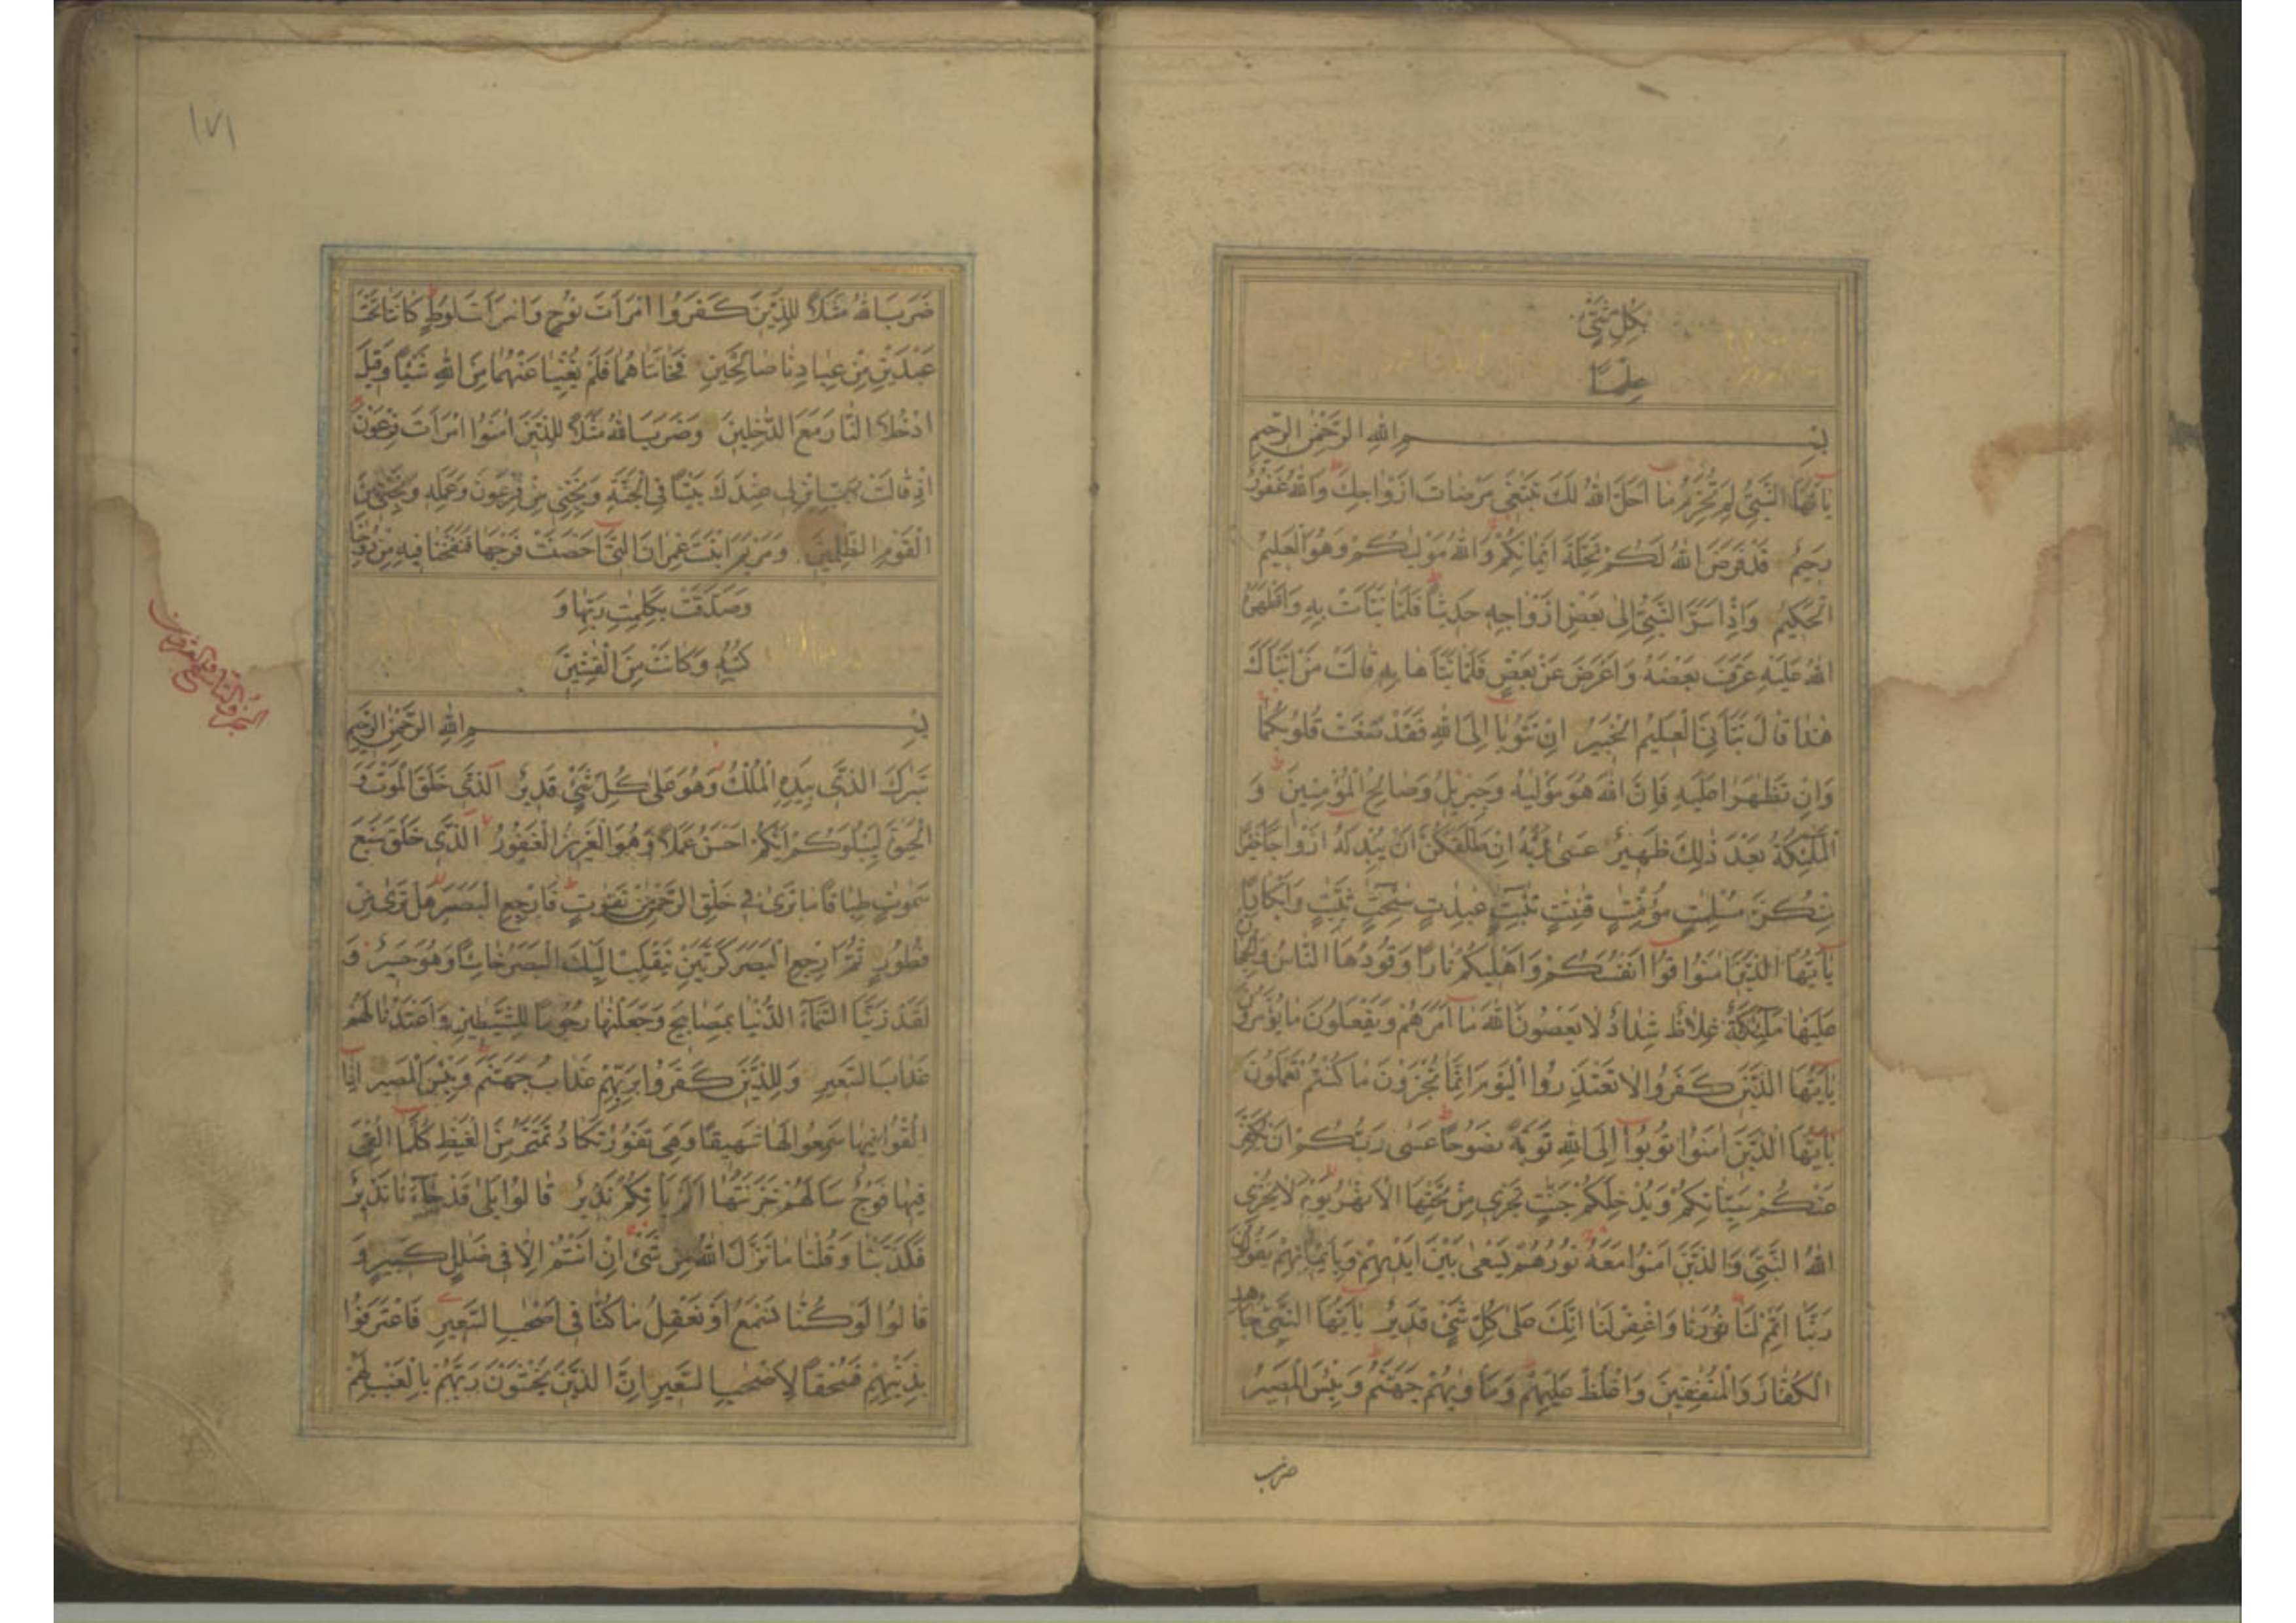 بِكُلِّ شَيْءٍ
عِلْمًا
بِسْمِ اللهِ الرَّحْمٰنِ الرَّحِيمِ
يٰٓاَيُّهَا النَّبِيُّ لِمَ تُحَرِّمُ مٰا اَحَلَّ اللهُ لَكَ تَبْتَغِي مَرْضٰاتَ اَزْوٰاجِكَ وَاللهُ غَفُورٌ
رَحِيمٌ قَدْ فَرَضَ اللهُ لَكُمْ تَحِلَّةَ اَيْمٰانِكُمْ وَاللهُ مَوْلٰيكُمْ وَهُوَ الْعَلِيمُ
الْحَكِيمُ وَاِذْ اَسَرَّ النَّبِيُّ اِلىٰ بَعْضِ اَزْوٰاجِهِ حَدِيثًا فَلَمّٰا نَبَّاَتْ بِهِ وَاَظْهَرَهُ
اللهُ عَلَيْهِ عَرَّفَ بَعْضَهُ وَاَعْرَضَ عَنْ بَعْضٍ فَلَمّٰا نَبَّاَهٰا بِهِ قٰالَتْ مَنْ اَنْبَاَكَ
هٰذٰا قٰالَ نَبَّاَنِيَ الْعَلِيمُ الْخَبِيرُ اِنْ تَتُوبٰا اِلَى اللهِ فَقَدْ صَغَتْ قُلُوبُكُمٰا
وَاِنْ تَظٰهَرٰا عَلَيْهِ فَاِنَّ اللهَ هُوَ مَوْلٰيهُ وَجِبْرِيلُ وَصٰالِحُ الْمُؤْمِنِينَ وَ
الْمَلٰٓئِكَةُ بَعْدَ ذٰلِكَ ظَهِيرٌ عَسىٰ رَبُّهُ اِنْ طَلَّقَكُنَّ اَنْ يُبْدِلَهُ اَزْوٰاجًا خَيْرًا
مِنْكُنَّ مُسْلِمٰتٍ مُؤْمِنٰتٍ قٰنِتٰتٍ تٰٓئِبٰتٍ عٰبِدٰتٍ سٰٓئِحٰتٍ ثَيِّبٰتٍ وَاَبْكٰارًا
يٰٓاَيُّهَا الَّذِينَ اٰمَنُوا قُوا اَنْفُسَكُمْ وَاَهْلِيكُمْ نٰارًا وَقُودُهَا النّٰاسُ وَالْحِجٰارَةُ
عَلَيْهٰا مَلٰٓئِكَةٌ غِلٰاظٌ شِدٰادٌ لٰا يَعْصُونَ اللهَ مٰا اَمَرَهُمْ وَيَفْعَلُونَ مٰا يُؤْمَرُونَ
يٰٓاَيُّهَا الَّذِينَ كَفَرُوا لٰا تَعْتَذِرُوا الْيَوْمَ اِنَّمٰا تُجْزَوْنَ مٰا كُنْتُمْ تَعْمَلُونَ
يٰٓاَيُّهَا الَّذِينَ اٰمَنُوا تُوبُوا اِلَى اللهِ تَوْبَةً نَصُوحًا عَسىٰ رَبُّكُمْ اَنْ يُكَفِّرَ
عَنْكُمْ سَيِّئٰاتِكُمْ وَيُدْخِلَكُمْ جَنّٰتٍ تَجْرِي مِنْ تَحْتِهَا الْاَنْهٰرُ يَوْمَ لٰا يُخْزِي
اللهُ النَّبِيَّ وَالَّذِينَ اٰمَنُوا مَعَهُ نُورُهُمْ يَسْعىٰ بَيْنَ اَيْدِيهِمْ وَبِاَيْمٰانِهِمْ يَقُولُونَ
رَبَّنٰا اَتْمِمْ لَنٰا نُورَنٰا وَاغْفِرْ لَنٰا اِنَّكَ عَلىٰ كُلِّ شَيْءٍ قَدِيرٌ يٰٓاَيُّهَا النَّبِيُّ جٰاهِدِ
الْكُفّٰارَ وَالْمُنٰفِقِينَ وَاغْلُظْ عَلَيْهِمْ وَمَأْوٰيهُمْ جَهَنَّمُ وَبِئْسَ الْمَصِيرُ
ضرب
١٧١
ضَرَبَ اللهُ مَثَلًا لِلَّذِينَ كَفَرُوا امْرَاَتَ نُوحٍ وَامْرَاَتَ لُوطٍ كٰانَتٰا تَحْتَ
عَبْدَيْنِ مِنْ عِبٰادِنٰا صٰالِحَيْنِ فَخٰانَتٰاهُمٰا فَلَمْ يُغْنِيٰا عَنْهُمٰا مِنَ اللهِ شَيْئًا وَقِيلَ
ادْخُلَا النّٰارَ مَعَ الدّٰخِلِينَ وَضَرَبَ اللهُ مَثَلًا لِلَّذِينَ اٰمَنُوا امْرَاَتَ فِرْعَوْنَ
اِذْ قٰالَتْ رَبِّ ابْنِ لِي عِنْدَكَ بَيْتًا فِي الْجَنَّةِ وَنَجِّنِي مِنْ فِرْعَوْنَ وَعَمَلِهِ وَنَجِّنِي مِنَ
الْقَوْمِ الظّٰلِمِينَ وَمَرْيَمَ ابْنَتَ عِمْرٰانَ الَّتِي اَحْصَنَتْ فَرْجَهٰا فَنَفَخْنٰا فِيهِ مِنْ رُوحِنٰا
وَصَدَّقَتْ بِكَلِمٰتِ رَبِّهٰا وَ
كُتُبِهِ وَكٰانَتْ مِنَ الْقٰنِتِينَ
بِسْمِ اللهِ الرَّحْمٰنِ الرَّحِيمِ
تَبٰرَكَ الَّذِي بِيَدِهِ الْمُلْكُ وَهُوَ عَلىٰ كُلِّ شَيْءٍ قَدِيرٌ الَّذِي خَلَقَ الْمَوْتَ وَ
الْحَيٰوةَ لِيَبْلُوَكُمْ اَيُّكُمْ اَحْسَنُ عَمَلًا وَهُوَ الْعَزِيزُ الْغَفُورُ الَّذِي خَلَقَ سَبْعَ
سَمٰوٰتٍ طِبٰاقًا مٰا تَرىٰ فِي خَلْقِ الرَّحْمٰنِ مِنْ تَفٰوُتٍ فَارْجِعِ الْبَصَرَ هَلْ تَرىٰ مِنْ
فُطُورٍ ثُمَّ ارْجِعِ الْبَصَرَ كَرَّتَيْنِ يَنْقَلِبْ اِلَيْكَ الْبَصَرُ خٰاسِئًا وَهُوَ حَسِيرٌ وَ
لَقَدْ زَيَّنَّا السَّمٰٓاءَ الدُّنْيٰا بِمَصٰابِيحَ وَجَعَلْنٰهٰا رُجُومًا لِلشَّيٰطِينِ وَاَعْتَدْنٰا لَهُمْ
عَذٰابَ السَّعِيرِ وَلِلَّذِينَ كَفَرُوا بِرَبِّهِمْ عَذٰابُ جَهَنَّمَ وَبِئْسَ الْمَصِيرُ اِذٰا
اُلْقُوا فِيهٰا سَمِعُوا لَهٰا شَهِيقًا وَهِيَ تَفُورُ تَكٰادُ تَمَيَّزُ مِنَ الْغَيْظِ كُلَّمٰا اُلْقِيَ
فِيهٰا فَوْجٌ سَاَلَهُمْ خَزَنَتُهٰا اَلَمْ يَأْتِكُمْ نَذِيرٌ قٰالُوا بَلىٰ قَدْ جٰٓاءَنٰا نَذِيرٌ
فَكَذَّبْنٰا وَقُلْنٰا مٰا نَزَّلَ اللهُ مِنْ شَيْءٍ اِنْ اَنْتُمْ اِلّٰا فِي ضَلٰلٍ كَبِيرٍ وَ
قٰالُوا لَوْ كُنّٰا نَسْمَعُ اَوْ نَعْقِلُ مٰا كُنّٰا فِي اَصْحٰبِ السَّعِيرِ فَاعْتَرَفُوا
بِذَنْبِهِمْ فَسُحْقًا لِاَصْحٰبِ السَّعِيرِ اِنَّ الَّذِينَ يَخْشَوْنَ رَبَّهُمْ بِالْغَيْبِ لَهُمْ
الجزو التاسع والعشرون